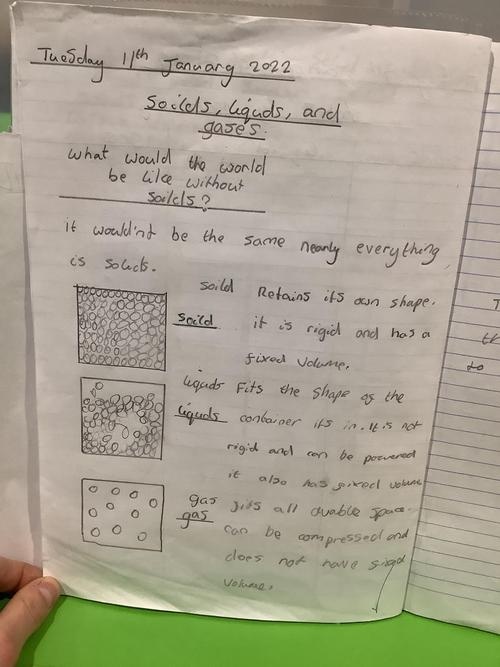 Tuesday 11th January 2022
Soilds, liquds, and
gases.
what would the world
be like without
soilds?
it wouldn't be the same nearly everything
is solids.
soild Retains its own shape.
soild it is rigid and has a
fixed volume.
liquds Fits the shape of the
liquds container its in. It is not
rigid and can be powered
it also has fixed volume
gas fits all avable space.
gas can be compressed and
does not have
volume.